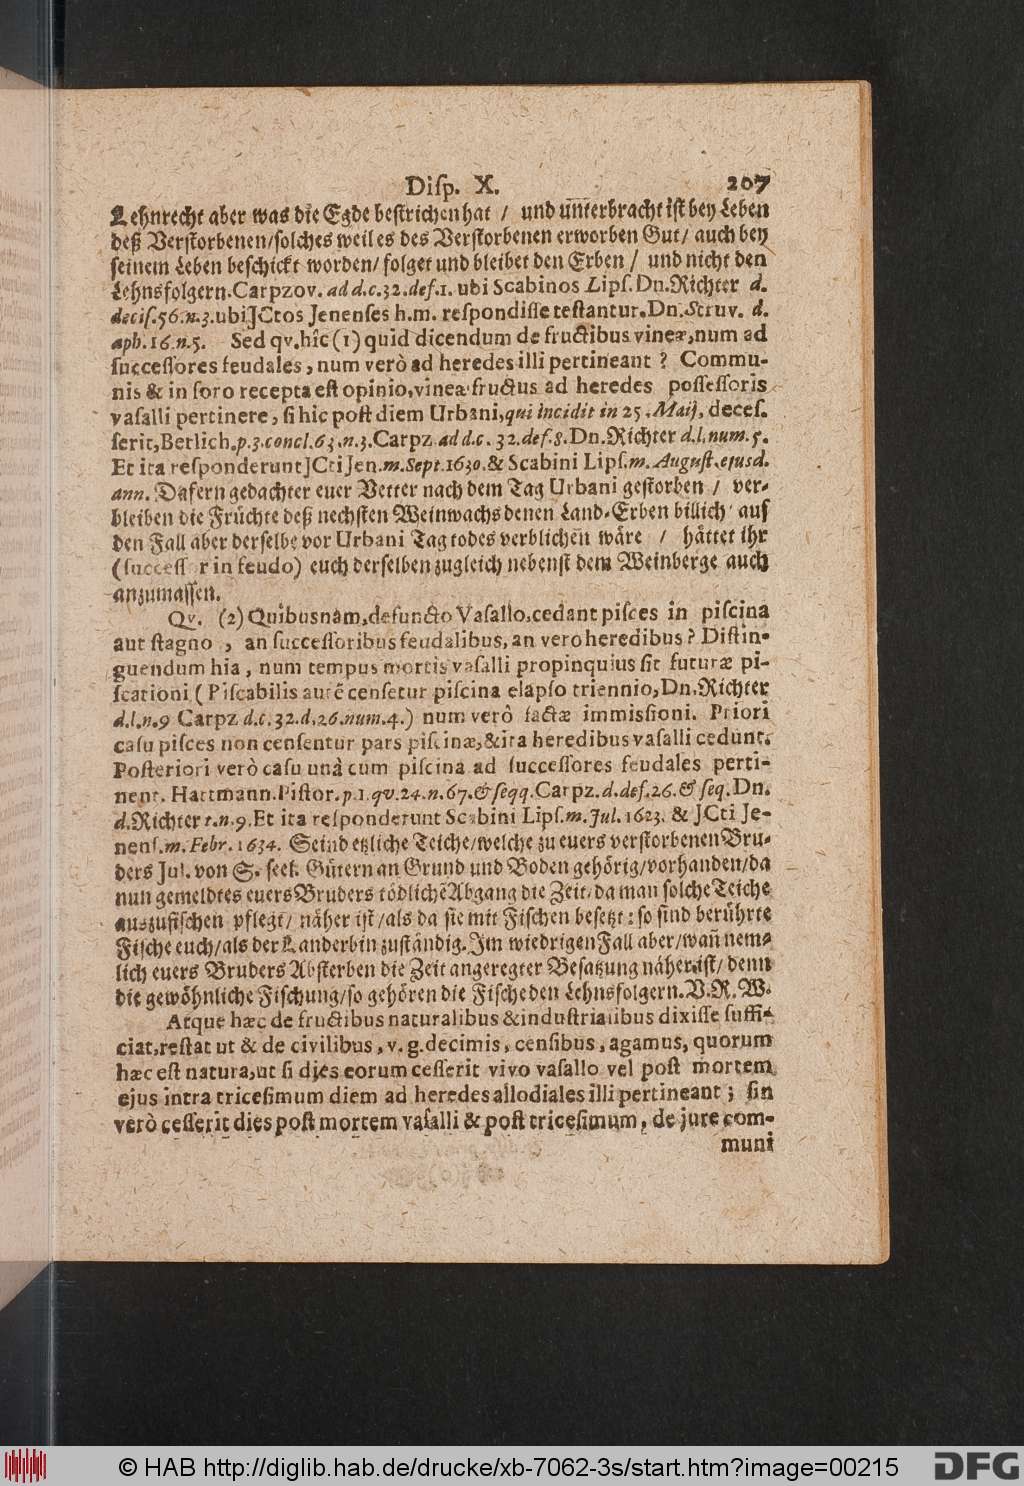 Disp. X. 207
Lehnrecht aber was die Egde bestrichen hat / und un̄terbracht ist bey Leben
deß Verstorbenen/solches weil es des Verstorbenen erworben Gut/ auch bey
seinem Leben beschickt worden/ folget und bleibet den Erben / und nicht den
Lehnsfolgern. Carpzov. ad d.c.32.def.1. ubi Scabinos Lips. Dn. Richter d.
decis.56.n.3. ubi JCtos Jenenses h.m. respondisse testantur. Dn. Struv. d.
aph.16.n.5. Sed qv. hîc (1) quid dicendum de fructibus vineæ, num ad
successores feudales, num verò ad heredes illi pertineant? Commu-
nis & in foro recepta est opinio, vineæ fructus ad heredes possessoris
vasalli pertinere, si hic post diem Urbani, qui incidit in 25. Maij, deces-
serit, Berlich. p.3. concl. 63. n.3. Carpz. ad d.c. 32. def.8. Dn. Richter d.l. num. 5.
Et ita responderunt JCti Jen. m. Sept. 1630. & Scabini Lips. m. August. ejusd.
ann. Dafern gedachter euer Vetter nach dem Tag Urbani gestorben / ver-
bleiben die Früchte deß nechsten Weinwachs denen Land-Erben billich auf
den Fall aber derselbe vor Urbani Tag todes verblichen wäre / hättet ihr
(successor in feudo) euch derselben zugleich nebenst dem Weinberge auch
anzumassen.
Qv. (2) Quibusnam, defuncto Vasallo, cedant pisces in piscina
aut stagno, an successoribus feudalibus, an vero heredibus? Distin-
guendum hîa, num tempus mortis vasalli propinquius sit futuræ pi-
scationi (Piscabilis autē censetur piscina elapso triennio, Dn. Richter
d.l.n.9 Carpz d.c.32.d.26.num.4.) num verò factæ immissioni. Priori
casu pisces non censentur pars piscinæ, & ita heredibus vasalli cedunt.
Posteriori verò casu unà cum piscina ad successores feudales perti-
nent. Hartmann. Pistor. p.1. qv.24. n.67. & seqq. Carpz. d. def.26. & seq. Dn.
d. Richter t.n.9. Et ita responderunt Scabini Lips. m. Jul. 1623. & JCti Je-
nens. m. Febr. 1634. Seind etzliche Teiche/welche zu euers verstorbenen Bru-
ders Jul. von S. seel. Gütern an Grund und Boden gehörig/vorhanden/da
nun gemeldtes euers Bruders tödlichē Abgang die Zeit/ da man solche Teiche
auszufischen pflegt/ näher ist/als da sie mit Fischen besetzt: so sind berührte
Fische euch/als der Landerbin zuständig. Im wiedrigen Fall aber/wañ nem-
lich euers Bruders Absterben die Zeit angeregter Besatzung näher ist/ denn
die gewöhnliche Fischung/so gehören die Fische den Lehnsfolgern. V.R.W.
Atque hæc de fructibus naturalibus & industrialibus dixisse suffi-
ciat, restat ut & de civilibus, v.g. decimis, censibus, agamus, quorum
hæc est natura, ut si dies eorum cesserit vivo vasallo vel post mortem
ejus intra tricesimum diem ad heredes allodiales illi pertineant; sin
verò cesserit dies post mortem vasalli & post tricesimum, de jure com-
muni
© HAB http://diglib.hab.de/drucke/xb-7062-3s/start.htm?image=00215
DFG